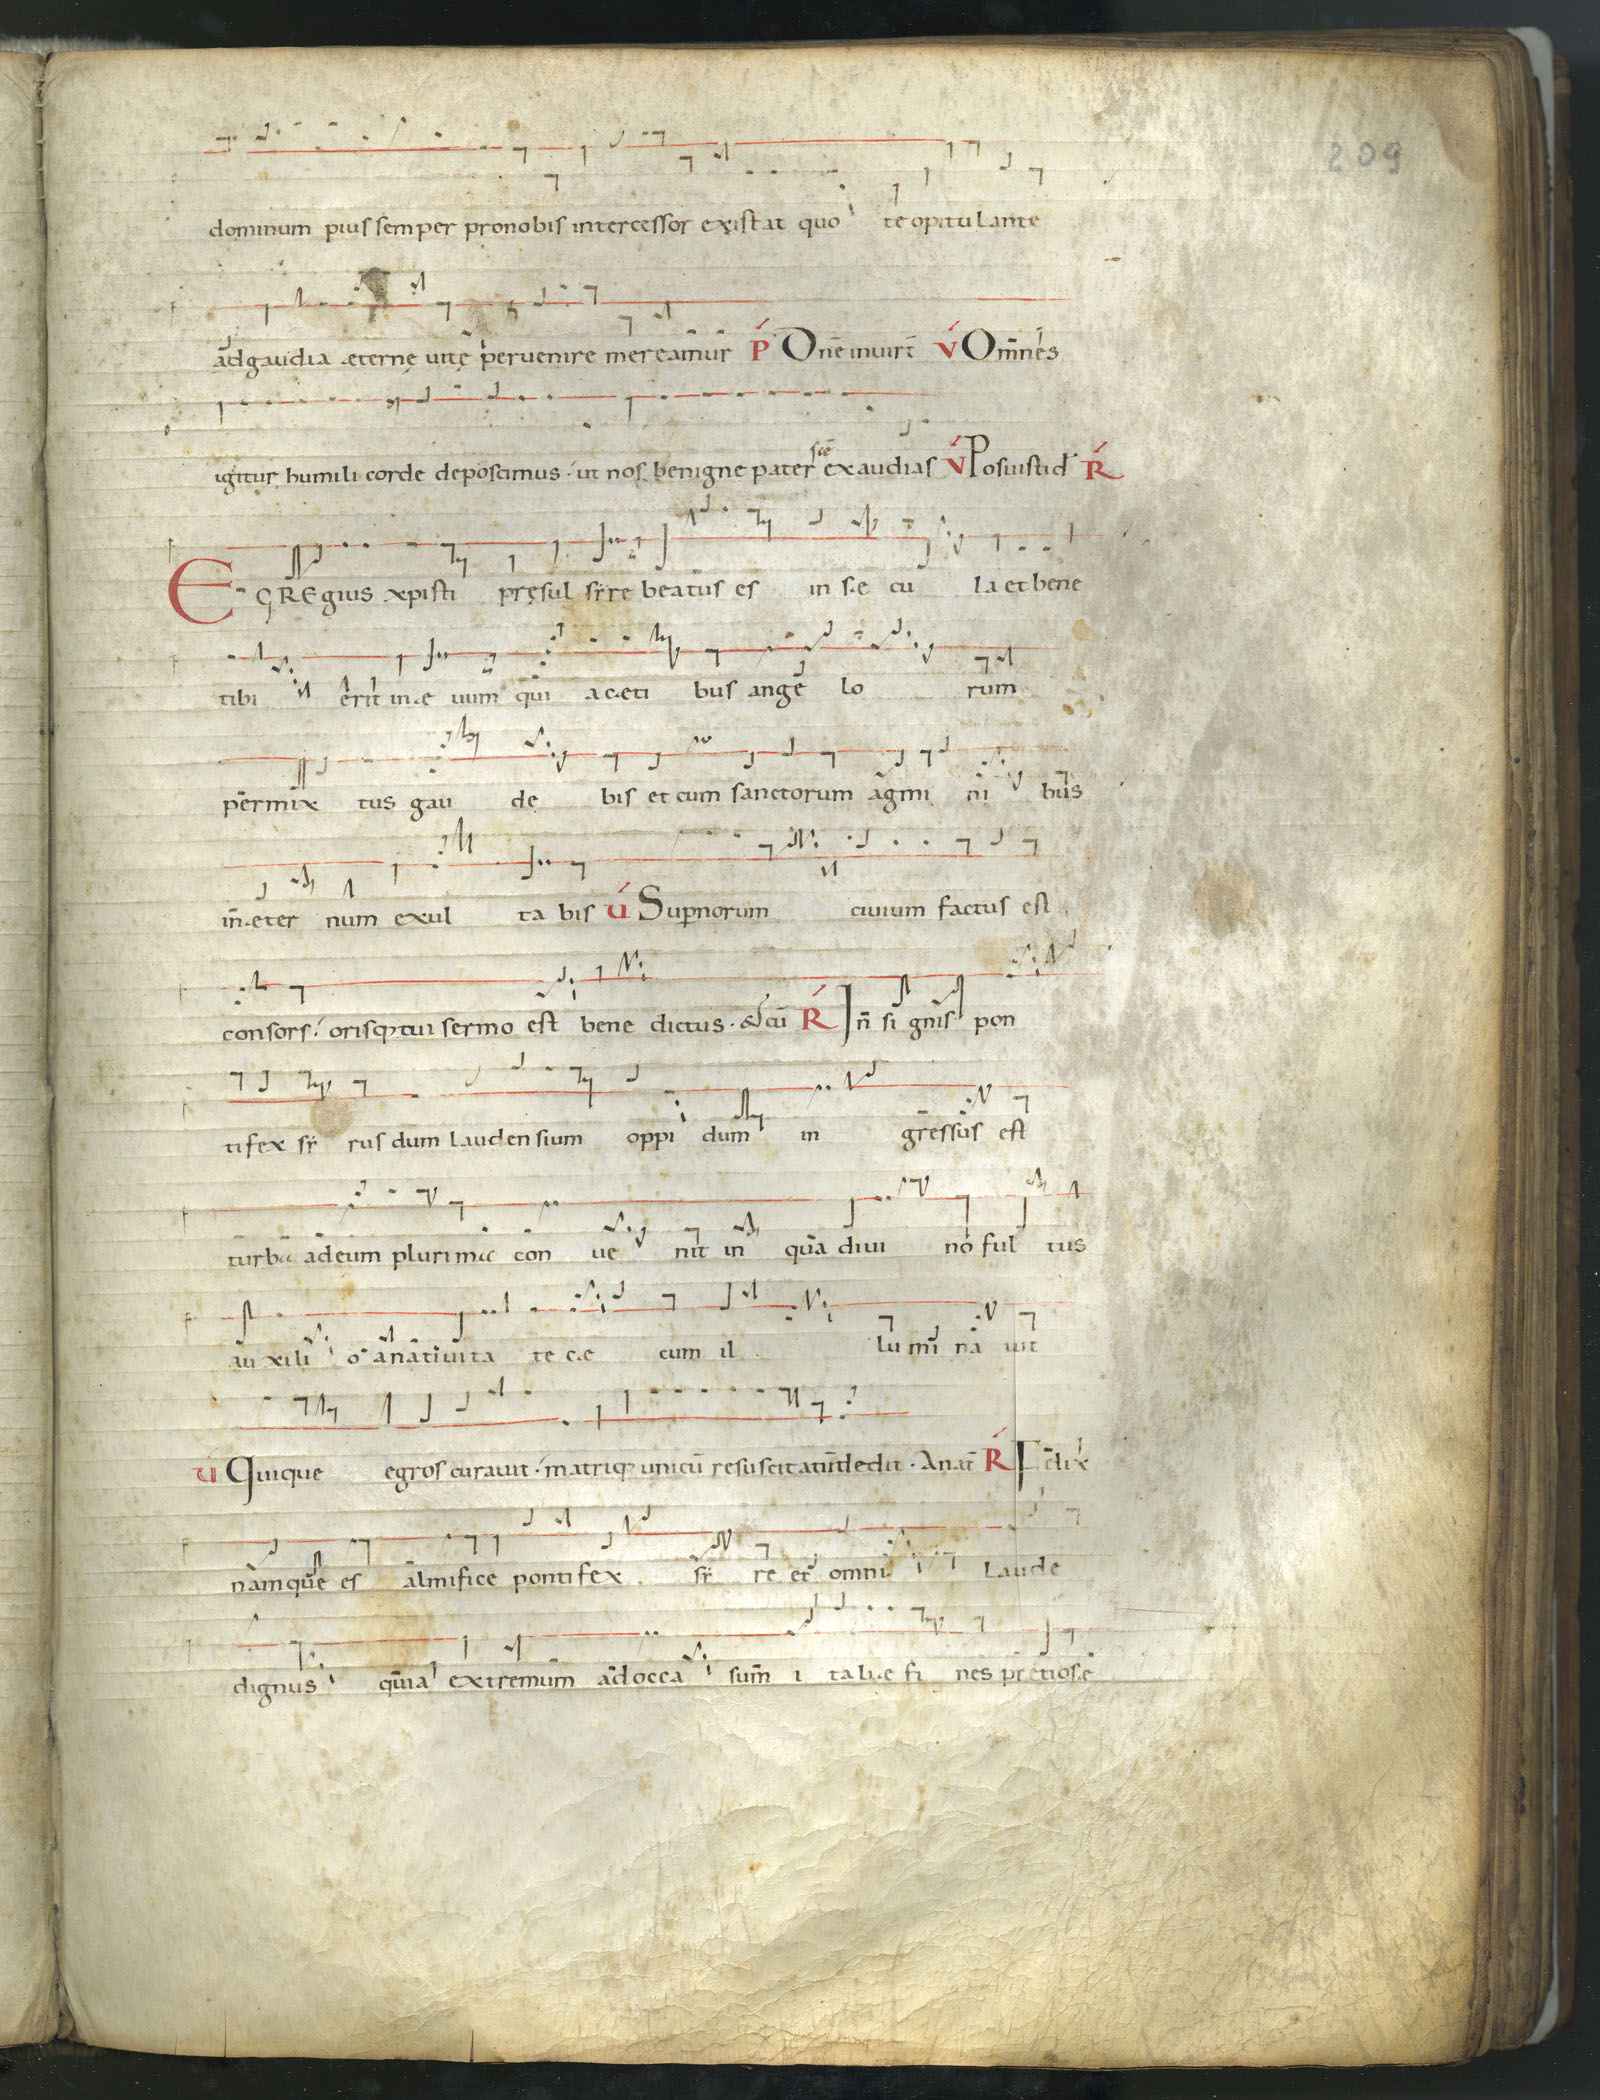 209
dominum pius semper pro nobis intercessor existat quo te opitulante
ad gaudia æternę uitę peruenire mereamur POne in uirt̄ V Omnes
igitur humili corde deposcimus · ut nos benigne pater scē exaudias V Posuisti d R
EGREgius xpisti pręsul sẏre beatus es in sæ cu la et bene
tibi erit in æ uum qui a cæti bus ange lo rum
permix tus gau de bis et cum sanctorum agmi ni bus
in æter num exul ta bis V Supnorum ciuium factus est
consors · orisq; tui sermo est bene dictus · & cū R In si gnis pon
tifex sẏ rus dum laudensium oppi dum in gressus est
turba ad eum plurima con ue nit in qua diui no ful tus
au xili o a natiuita te cæ cum il lu mi na uit
V Quique egros curauit · matriq; unicū resuscitatū dedit · A nat̄ R Felix
namque es almifice pontifex sẏ re et omni laude
dignus quia extremum ad occa sum i taliæ fi nes pretiosæ